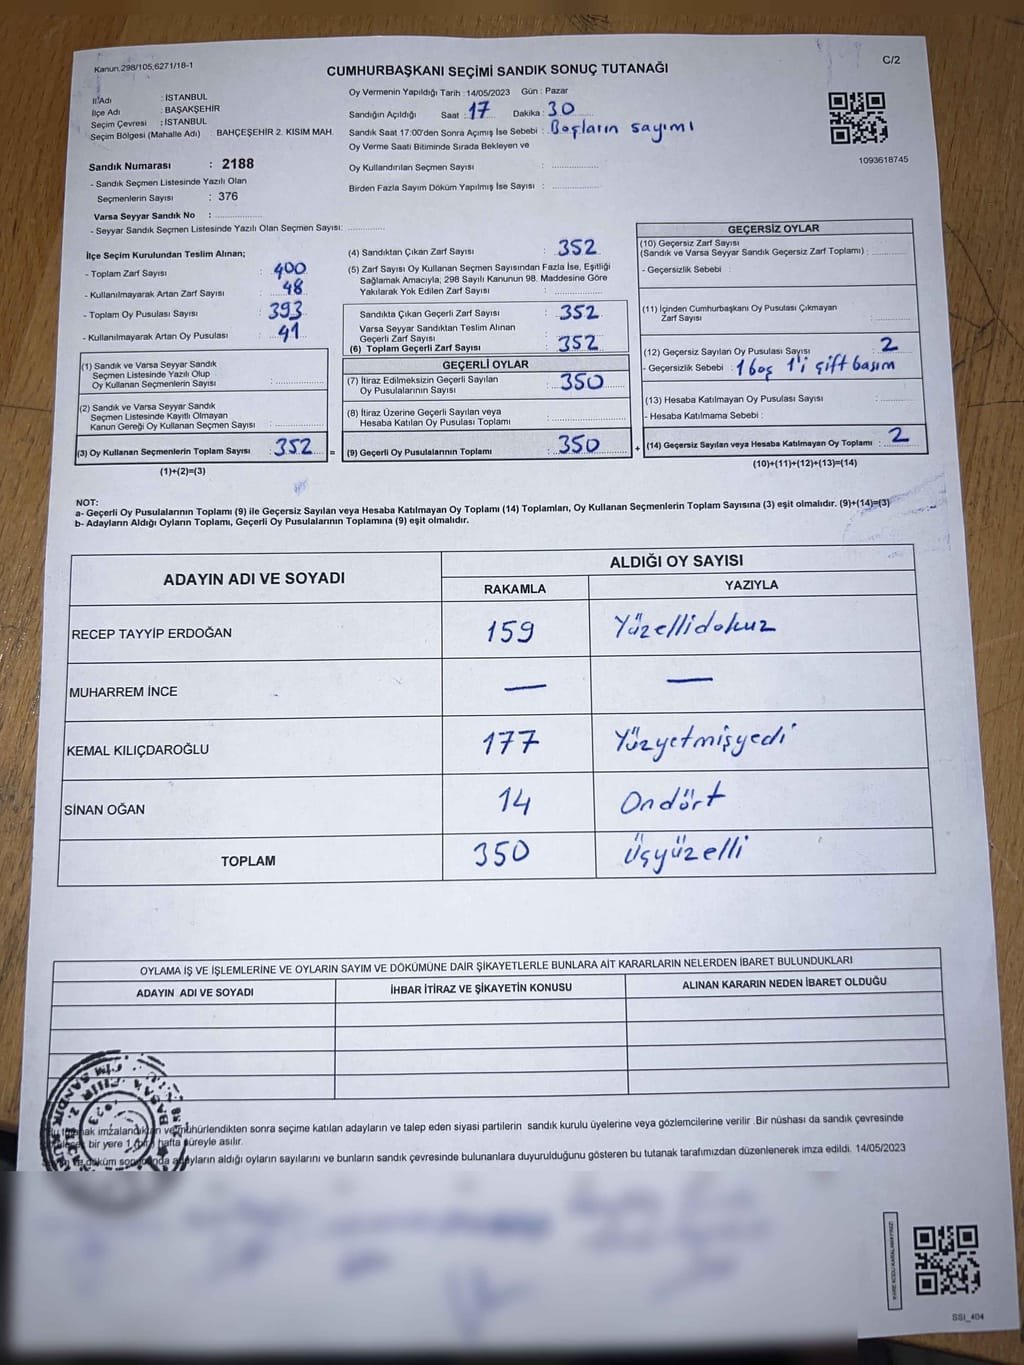 Kanun.298/105,6271/18-1
C/2
CUMHURBAŞKANI SEÇİMİ SANDIK SONUÇ TUTANAĞI
İl Adı : İSTANBUL
İlçe Adı : BAŞAKŞEHİR
Seçim Çevresi : İSTANBUL
Seçim Bölgesi (Mahalle Adı) : BAHÇEŞEHİR 2. KISIM MAH.
Sandık Numarası : 2188
- Sandık Seçmen Listesinde Yazılı Olan
Seçmenlerin Sayısı : 376
Varsa Seyyar Sandık No :
- Seyyar Sandık Seçmen Listesinde Yazılı Olan Seçmen Sayısı:
Oy Vermenin Yapıldığı Tarih : 14/05/2023 Gün : Pazar
Sandığın Açıldığı Saat : 17 Dakika : 30
Sandık Saat 17:00'den Sonra Açımış İse Sebebi : Boşların sayımı
Oy Verme Saati Bitiminde Sırada Bekleyen ve
Oy Kullandırılan Seçmen Sayısı :
Birden Fazla Sayım Döküm Yapılmış İse Sayısı :
1093618745
İlçe Seçim Kurulundan Teslim Alınan;
- Toplam Zarf Sayısı : 400
- Kullanılmayarak Artan Zarf Sayısı : 48
- Toplam Oy Pusulası Sayısı : 393
- Kullanılmayarak Artan Oy Pusulası : 41
(1) Sandık ve Varsa Seyyar Sandık
Seçmen Listesinde Yazılı Olup
Oy Kullanan Seçmenlerin Sayısı :
(2) Sandık ve Varsa Seyyar Sandık
Seçmen Listesinde Kayıtlı Olmayan
Kanun Gereği Oy Kullanan Seçmen Sayısı :
(3) Oy Kullanan Seçmenlerin Toplam Sayısı : 352 =
(1)+(2)=(3)
(4) Sandıktan Çıkan Zarf Sayısı : 352
(5) Zarf Sayısı Oy Kullanan Seçmen Sayısından Fazla İse, Eşitliği
Sağlamak Amacıyla, 298 Sayılı Kanunun 98. Maddesine Göre
Yakılarak Yok Edilen Zarf Sayısı :
Sandıkta Çıkan Geçerli Zarf Sayısı : 352
Varsa Seyyar Sandıktan Teslim Alınan
Geçerli Zarf Sayısı :
(6) Toplam Geçerli Zarf Sayısı : 352
GEÇERLİ OYLAR
(7) İtiraz Edilmeksizin Geçerli Sayılan
Oy Pusulasının Sayısı : 350
(8) İtiraz Üzerine Geçerli Sayılan veya
Hesaba Katılan Oy Pusulası Toplamı :
(9) Geçerli Oy Pusulalarının Toplamı : 350 +
GEÇERSİZ OYLAR
(10) Geçersiz Zarf Sayısı
(Sandık ve Varsa Seyyar Sandık Geçersiz Zarf Toplamı) :
- Geçersizlik Sebebi :
(11) İçinden Cumhurbaşkanı Oy Pusulası Çıkmayan
Zarf Sayısı :
(12) Geçersiz Sayılan Oy Pusulası Sayısı : 2
- Geçersizlik Sebebi : 1 boş 1'i çift basım
(13) Hesaba Katılmayan Oy Pusulası Sayısı :
- Hesaba Katılmama Sebebi :
(14) Geçersiz Sayılan veya Hesaba Katılmayan Oy Toplamı : 2
(10)+(11)+(12)+(13)=(14)
NOT:
a- Geçerli Oy Pusulasının Toplamı (9) ile Geçersiz Sayılan veya Hesaba Katılmayan Oy Toplamı (14) Toplamları, Oy Kullanan Seçmenlerin Toplam Sayısına (3) eşit olmalıdır. (9)+(14)=(3)
b- Adayların Aldığı Oyların Toplamı, Geçerli Oy Pusulalarının Toplamına (9) eşit olmalıdır.
ADAYIN ADI VE SOYADI
ALDIĞI OY SAYISI
RAKAMLA YAZIYLA
RECEP TAYYİP ERDOĞAN 159 Yüzellidokuz
MUHARREM İNCE — —
KEMAL KILIÇDAROĞLU 177 Yüzyetmişyedi
SİNAN OĞAN 14 Ondört
TOPLAM 350 Üçyüzelli
OYLAMA İŞ VE İŞLEMLERİNE VE OYLARIN SAYIM VE DÖKÜMÜNE DAİR ŞİKAYETLERLE BUNLARA AİT KARARLARIN NELERDEN İBARET BULUNDUKLARI
ADAYIN ADI VE SOYADI İHBAR İTİRAZ VE ŞİKAYETİN KONUSU ALINAN KARARIN NEDEN İBARET OLDUĞU
imzalandıktan ve mühürlendikten sonra seçime katılan adayların ve talep eden siyasi partilerin sandık kurulu üyelerine veya gözlemcilerine verilir. Bir nüshası da sandık çevresinde
bir yere 1 hafta süreyle asılır.
döküm adayların aldığı oyların sayılarını ve bunların sandık çevresinde bulunanlara duyurulduğunu gösteren bu tutanak tarafımızdan düzenlenerek imza edildi. 14/05/2023
SSI_404